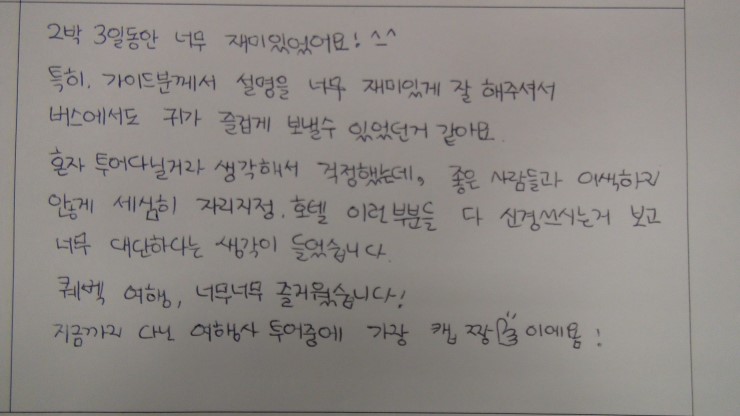 2박 3일동안 너무 재미있었어요! ^-^
특히, 가이드분께서 설명을 너무 재미있게 잘 해주셔서
버스에서도 귀가 즐겁게 보낼수 있었던거 같아요.
혼자 투어다닐거라 생각해서 걱정했는데, 좋은 사람들과 어색하지
않게 세심히 자리지정, 호텔 이런부분들 다 신경쓰시는거 보고
너무 대단하다는 생각이 들었습니다.
퀘벡 여행, 너무너무 즐거웠습니다!
지금까지 다닌 여행사 투어중에 가장 캡 짱 이에욤!